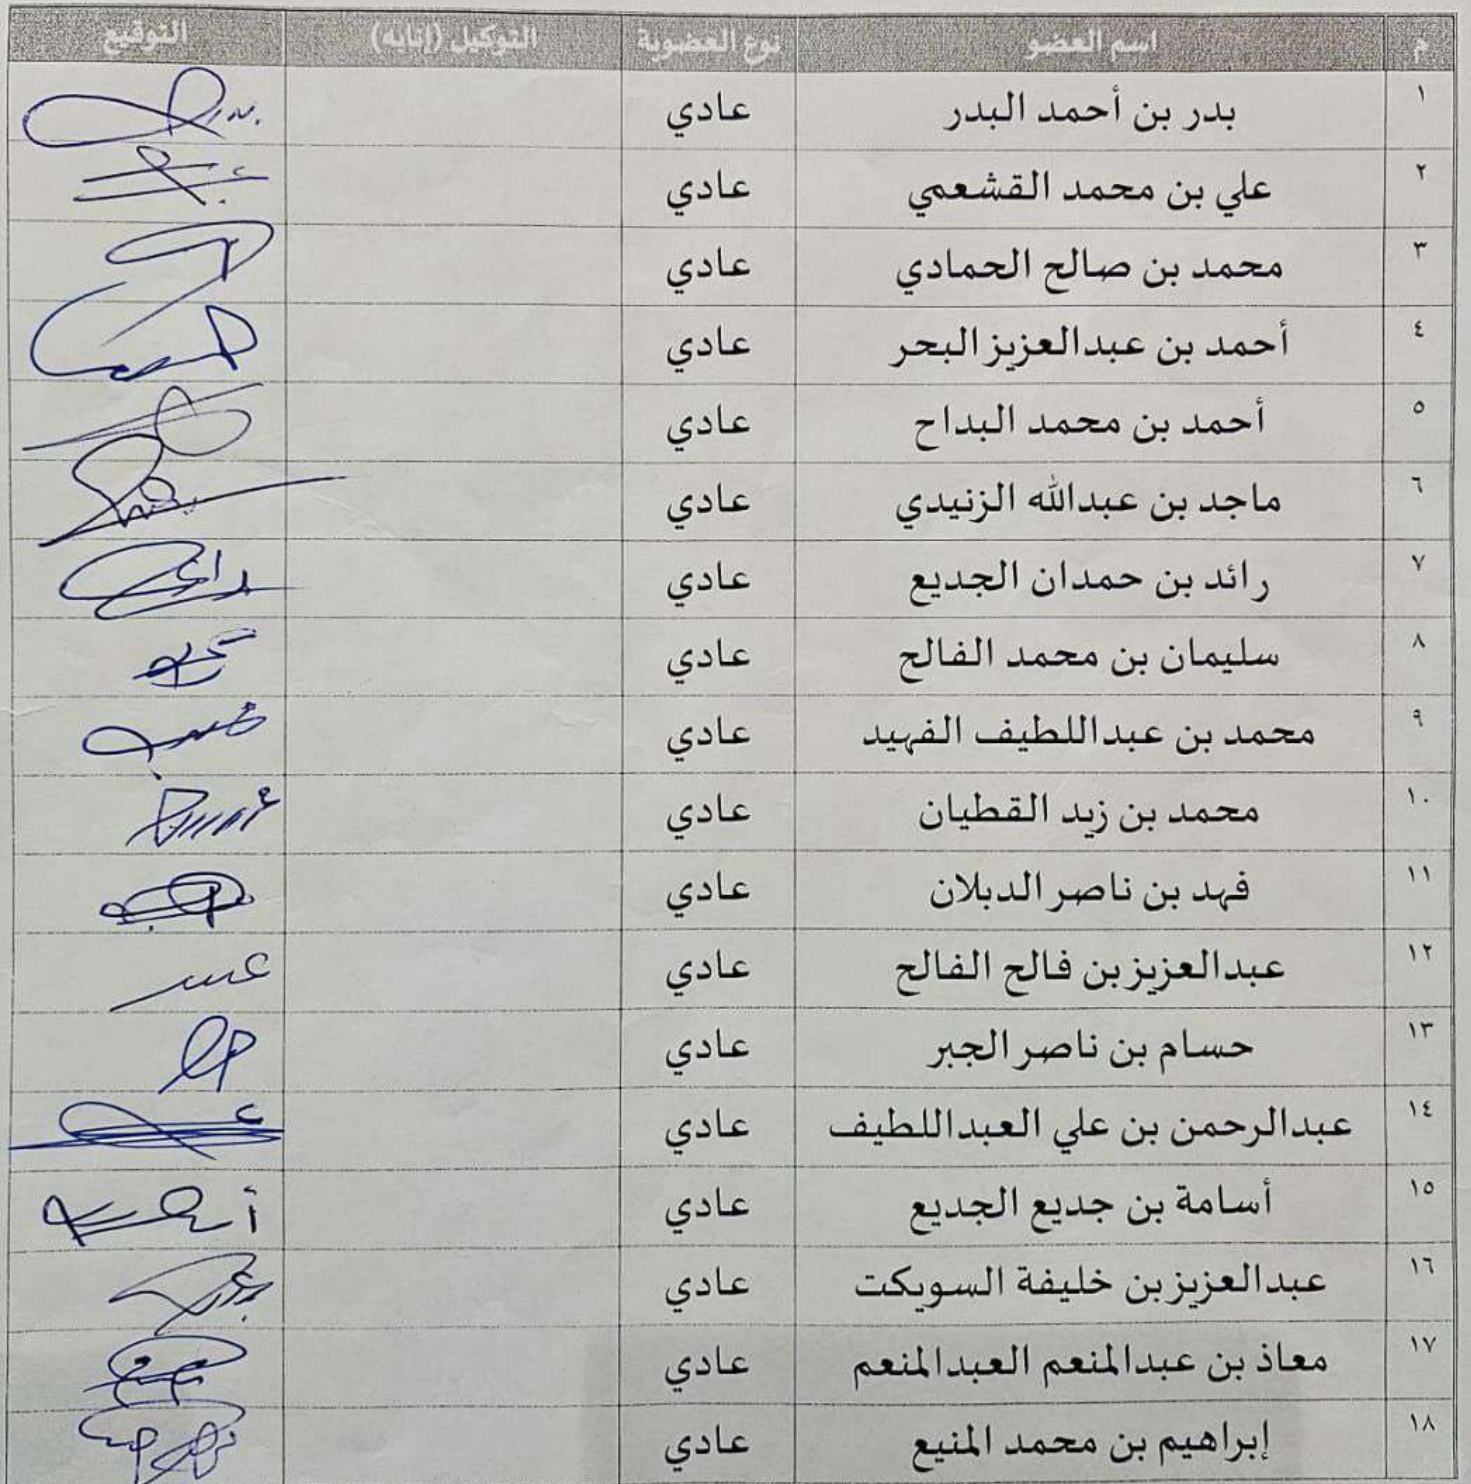 م اسم العضو نوع العضوية التوكيل (إنابه) التوقيع
١ بدر بن أحمد البدر عادي
٢ علي بن محمد القشعمي عادي
٣ محمد بن صالح الحمادي عادي
٤ أحمد بن عبدالعزيز البحر عادي
٥ أحمد بن محمد البداح عادي
٦ ماجد بن عبدالله الزنيدي عادي
٧ رائد بن حمدان الجديع عادي
٨ سليمان بن محمد الفالح عادي
٩ محمد بن عبداللطيف الفهيد عادي
١٠ محمد بن زيد القطيان عادي
١١ فهد بن ناصر الدبلان عادي
١٢ عبدالعزيز بن فالح الفالح عادي
١٣ حسام بن ناصر الجبر عادي
١٤ عبدالرحمن بن علي العبداللطيف عادي
١٥ أسامة بن جديع الجديع عادي
١٦ عبدالعزيز بن خليفة السويكت عادي
١٧ معاذ بن عبدالمنعم العبدالمنعم عادي
١٨ إبراهيم بن محمد المنيع عادي